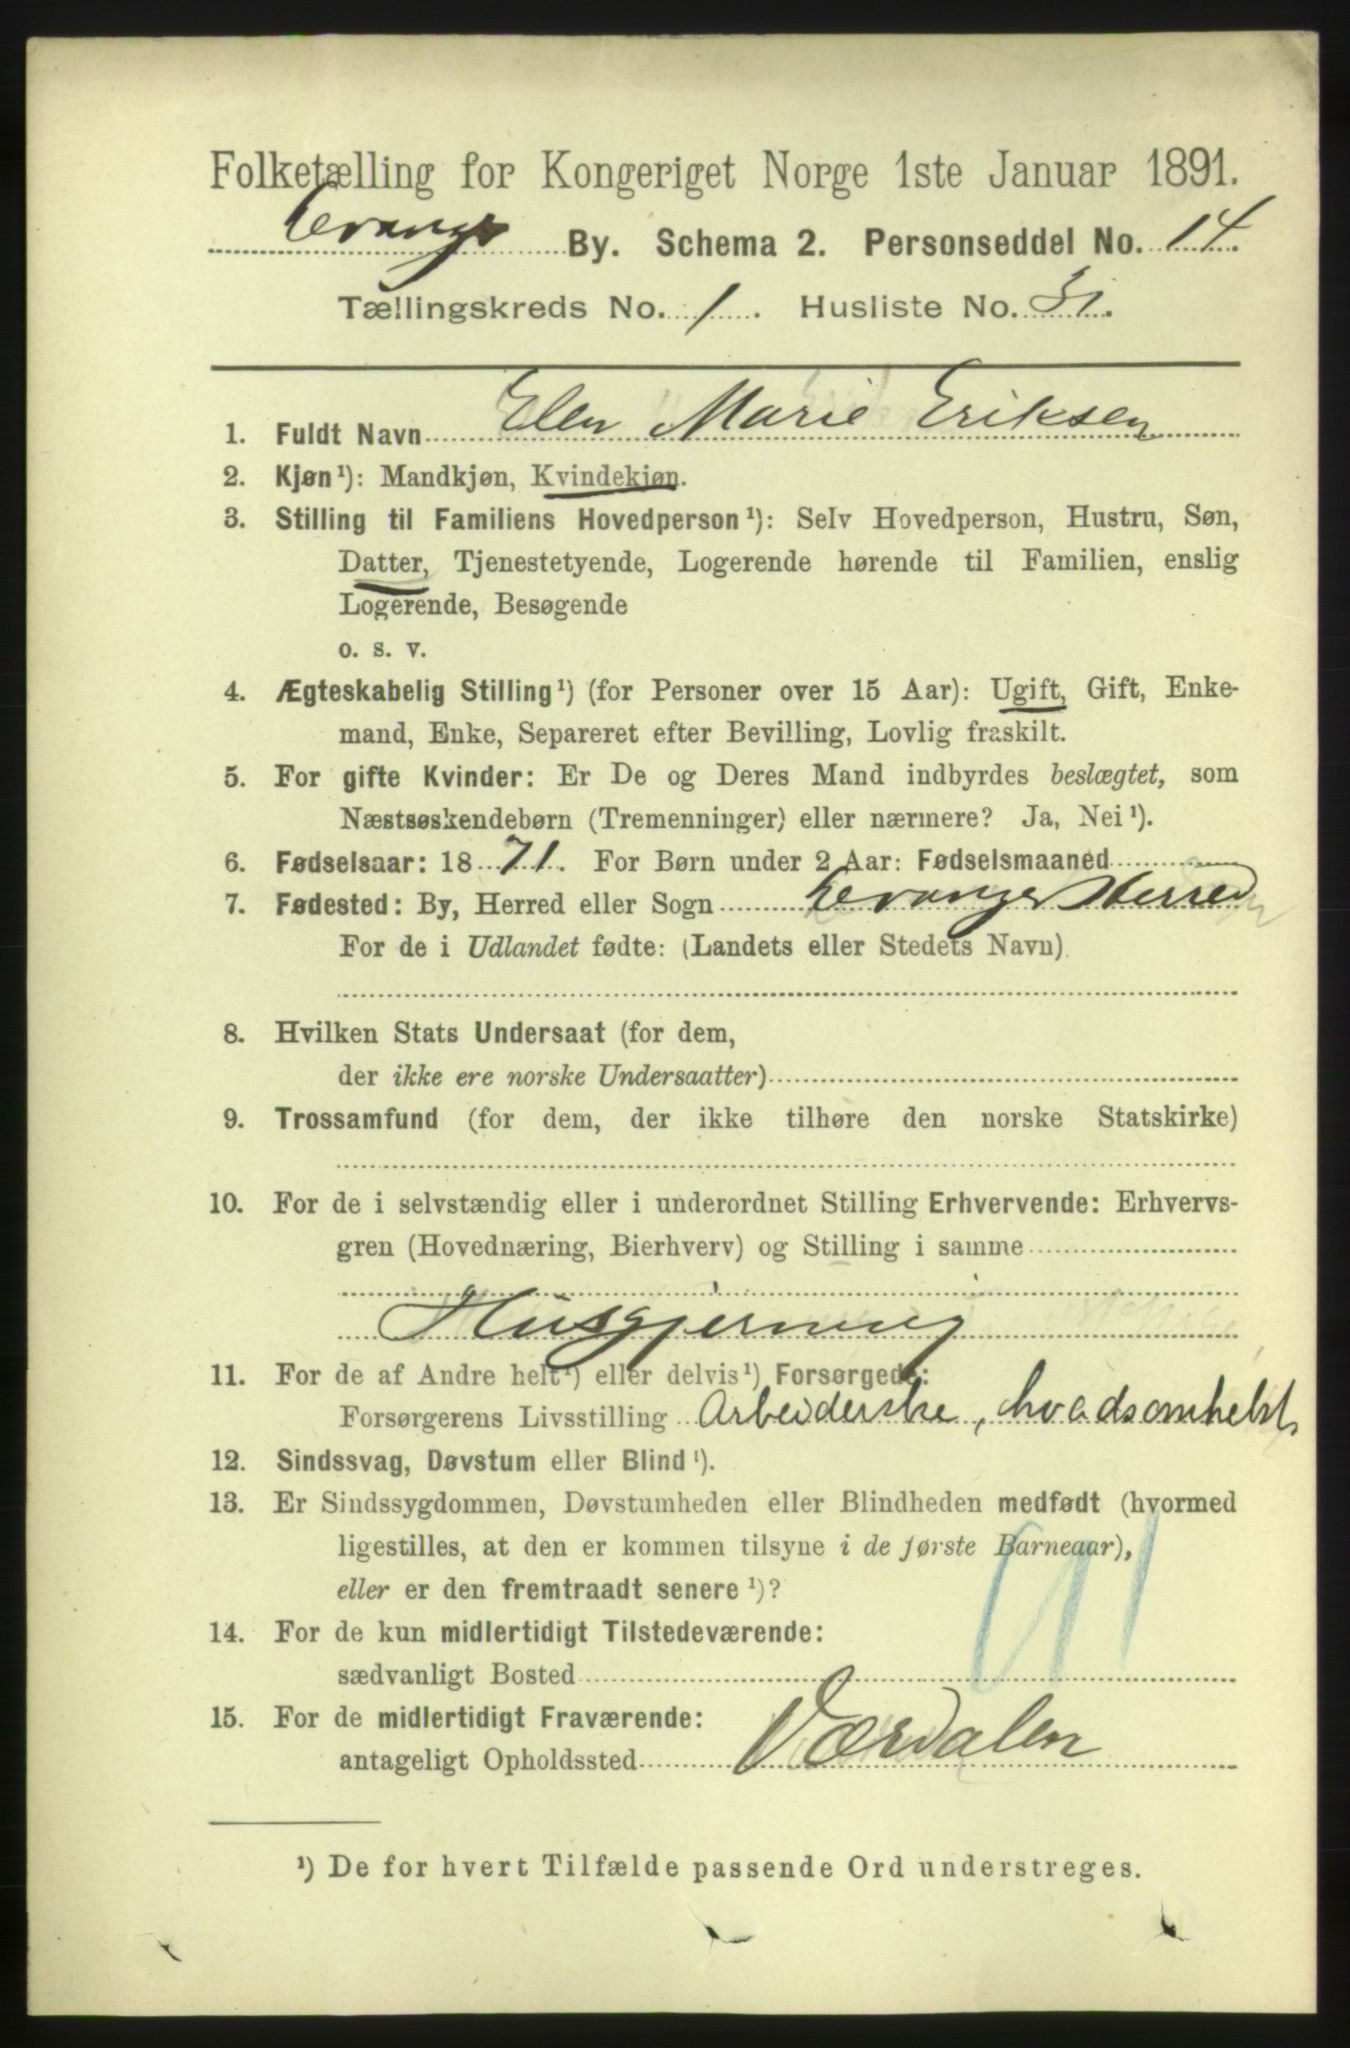 Folketælling for Kongeriget Norge 1ste Januar 1891.
Levanger By. Schema 2. Personseddel No. 14.
Tællingskreds No. 1. Husliste No. 31.
1. Fuldt Navn Elen Marie Eriksen
2. Kjøn¹): Mandkjøn, Kvindekjøn.
3. Stilling til Familiens Hovedperson¹): Selv Hovedperson, Hustru, Søn,
Datter, Tjenestetyende, Logerende hørende til Familien, enslig
Logerende, Besøgende
o. s. v.
4. Ægteskabelig Stilling¹) (for Personer over 15 Aar): Ugift, Gift, Enke-
mand, Enke, Separeret efter Bevilling, Lovlig fraskilt.
5. For gifte Kvinder: Er De og Deres Mand indbyrdes beslægtet, som
Næstsøskendebørn (Tremenninger) eller nærmere? Ja, Nei¹).
6. Fødselsaar: 1871. For Børn under 2 Aar: Fødselsmaaned
7. Fødested: By, Herred eller Sogn Levanger Herred
For de i Udlandet fødte: (Landets eller Stedets Navn)
8. Hvilken Stats Undersaat (for dem,
der ikke ere norske Undersaatter)
9. Trossamfund (for dem, der ikke tilhøre den norske Statskirke)
10. For de i selvstændig eller i underordnet Stilling Erhvervende: Erhvervs-
gren (Hovednæring, Bierhverv) og Stilling i samme
Husgjerning
11. For de af Andre helt¹) eller delvis¹) Forsørgede:
Forsørgerens Livsstilling Arbeiderske, hvadsomhelst
12. Sindssvag, Døvstum eller Blind¹).
13. Er Sindssygdommen, Døvstumheden eller Blindheden medfødt (hvormed
ligestilles, at den er kommen tilsyne i de første Barneaar),
eller er den fremtraadt senere¹)?
14. For de kun midlertidigt Tilstedeværende:
sædvanligt Bosted
15. For de midlertidigt Fraværende:
antageligt Opholdssted Værdalen
¹) De for hvert Tilfælde passende Ord understreges.